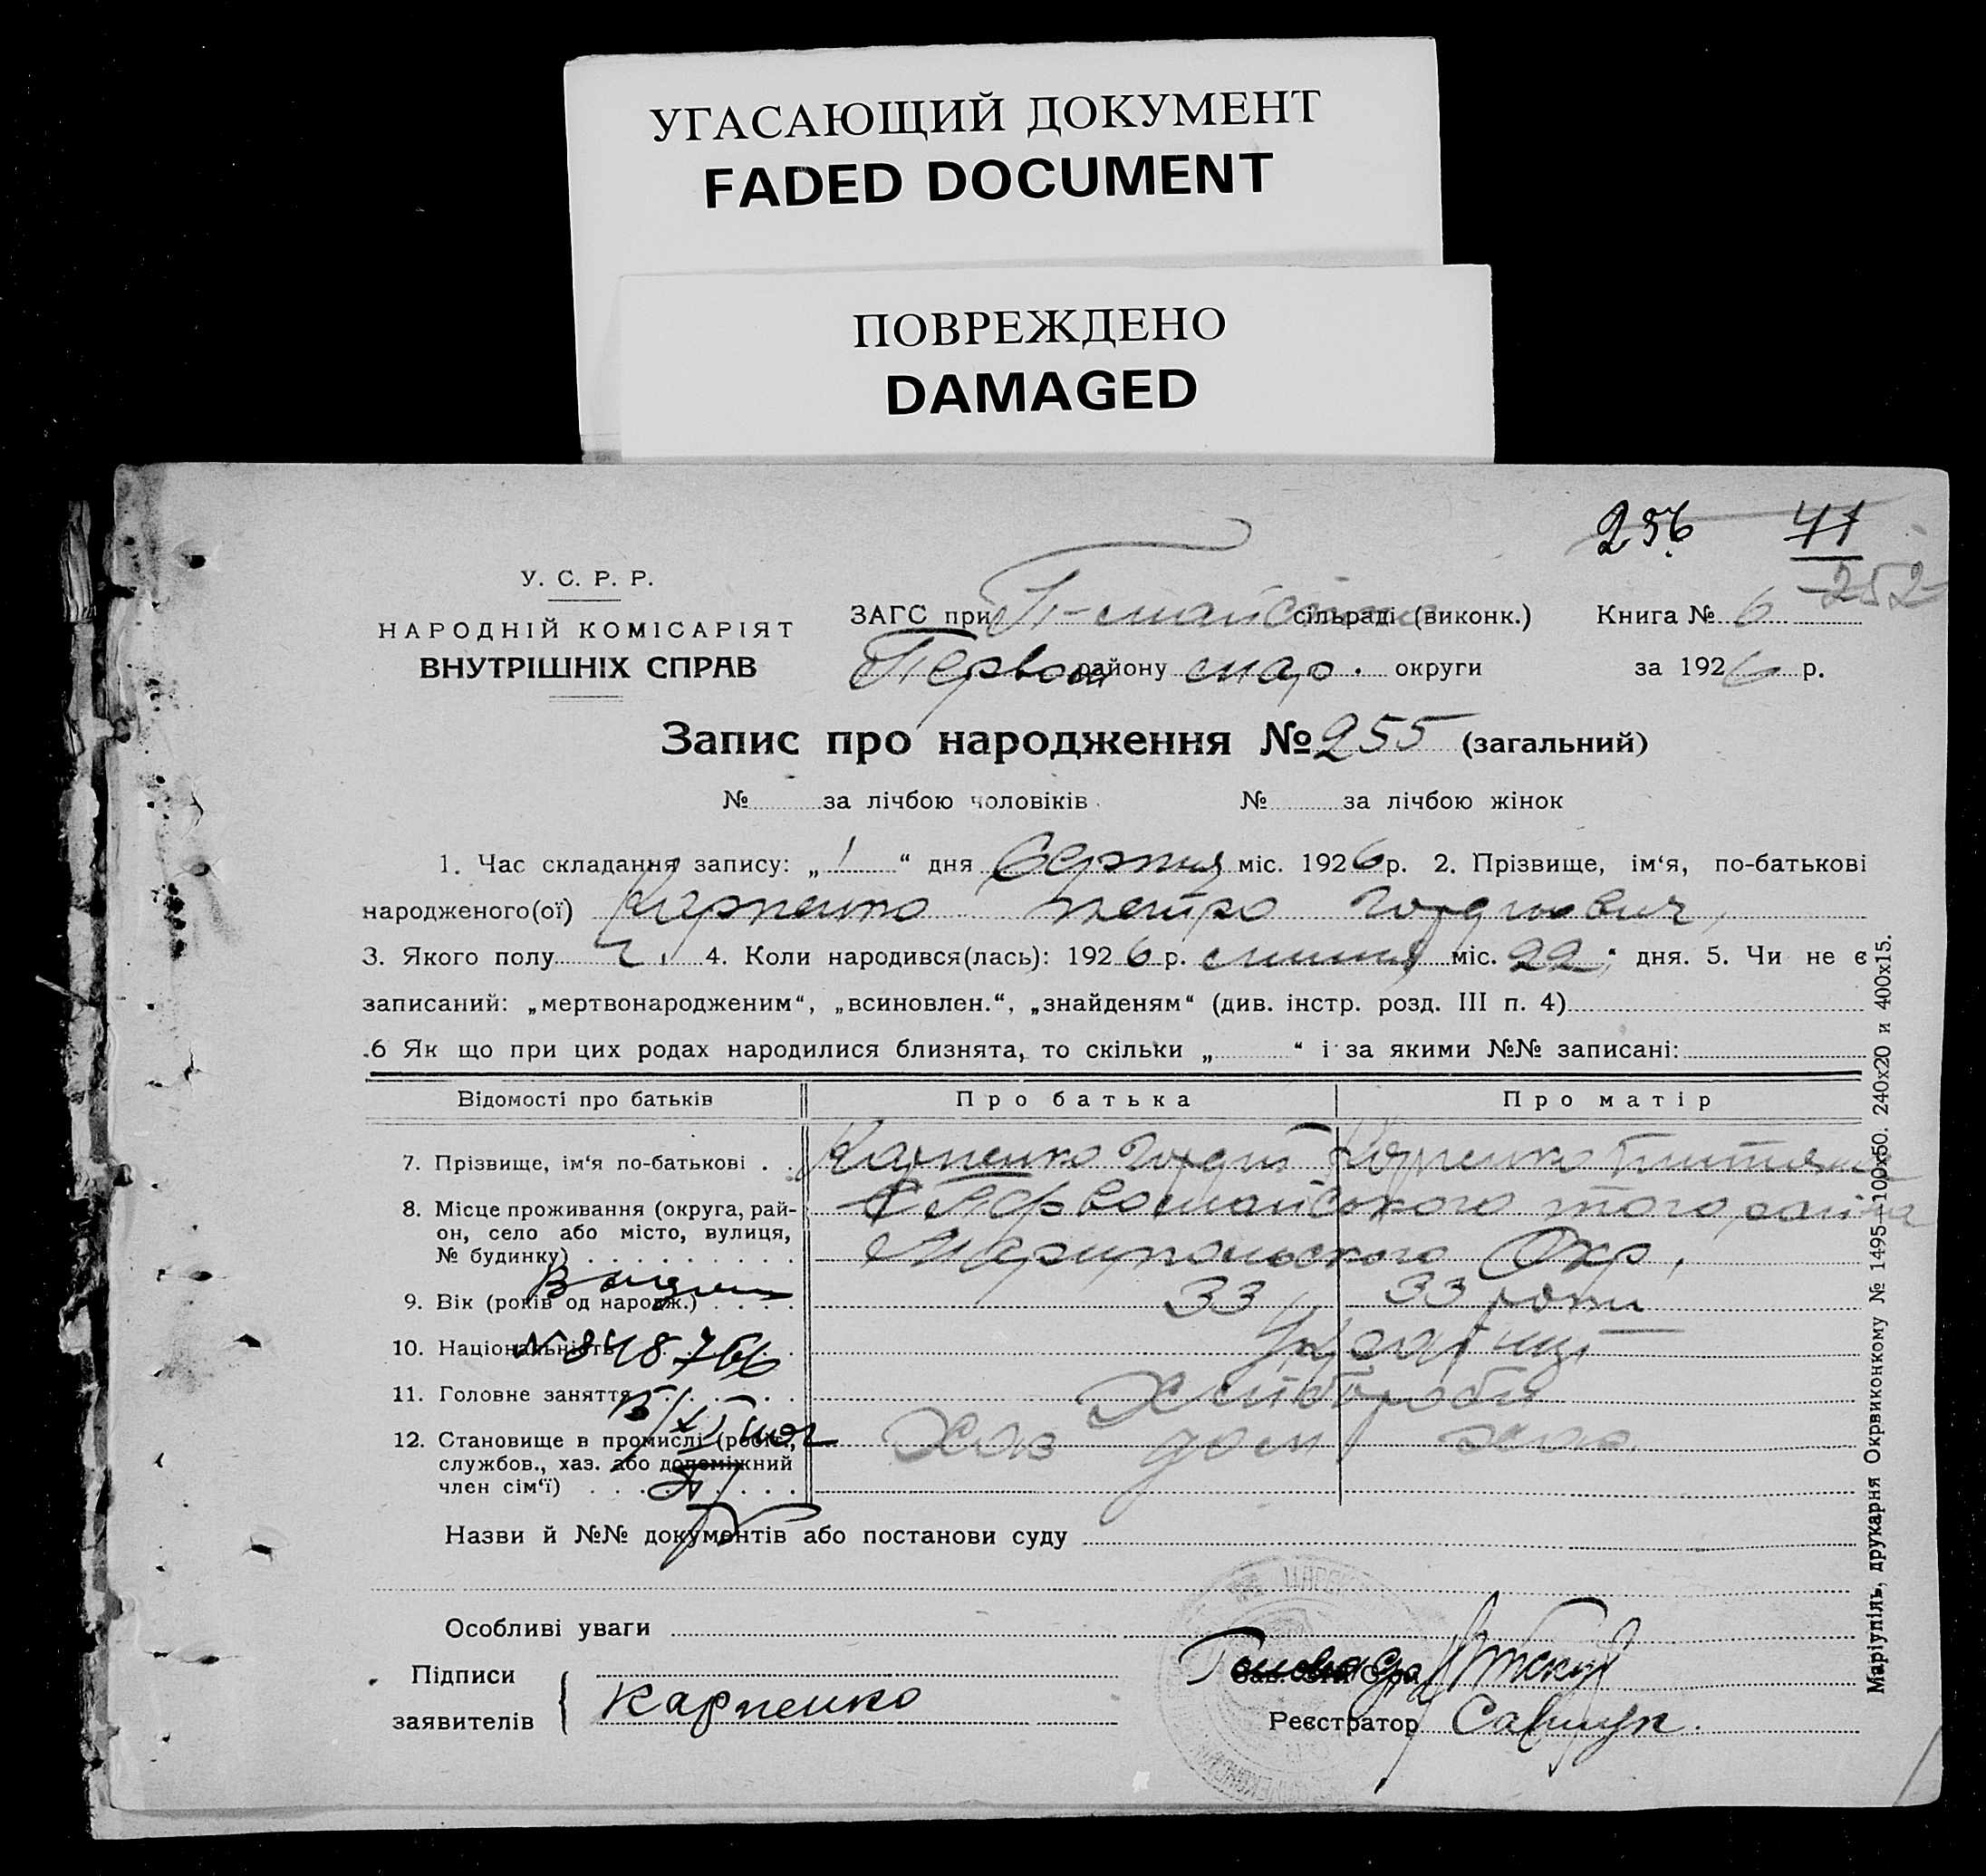 УГАСАЮЩИЙ ДОКУМЕНТ
FADED DOCUMENT
ПОВРЕЖДЕНО
DAMAGED
256 41
252
У. С. Р. Р.
НАРОДНІЙ КОМІСАРІЯТ
ВНУТРІШНІХ СПРАВ
ЗАГС при П-майськ сільраді (виконк.) Книга № 6
Первом району мар. округи за 1926 р.
Запис про народження № 255 (загальний)
№ за лічбою чоловіків № за лічбою жінок
1. Час складання запису: „1“ дня Серпня міс. 1926 р. 2. Прізвище, ім‘я, по-батькові
народженого(ої) Карпенко петро Гордиевич,
3. Якого полу ч. 4. Коли народився(лась): 1926 р. липня міс. 22 “ дня. 5. Чи не є
записаний: „мертвонародженим“, „всиновлен.“, „знайденям“ (див. інстр. розд. III п. 4)
.6 Як що при цих родах народилися близнята, то скільки „ “ і за якими №№ записані:
Відомості про батьків Про батька Про матір
7. Прізвище, ім‘я по-батькові . . Карпенко Гордій Карпенко
8. Місце проживання (округа, рай-
он, село або місто, вулиця,
№ будинку) . . . . . . . . .
с Первомайського того района
Мариупольского Окр.
9. Вік (років од народж.) . . . . 33 33 роки
Видан
10. Національність Українці
№ 848766
11. Головне заняття . . . . . . Хлібороби
12. Становище в промислі (робіт.,
службов., хаз. або допоміжний
член сім‘ї) . . . . . . . . .
Хаз дом хаз
Назви й №№ документів або постанови суду
Особливі уваги
Підписи
заявителів
Карпенко
Голова С/ра
Реєстратор Савчук.
Маріупіль, друкарня Окрвиконкому № 1495—100х50. 240х20 и 400х15.